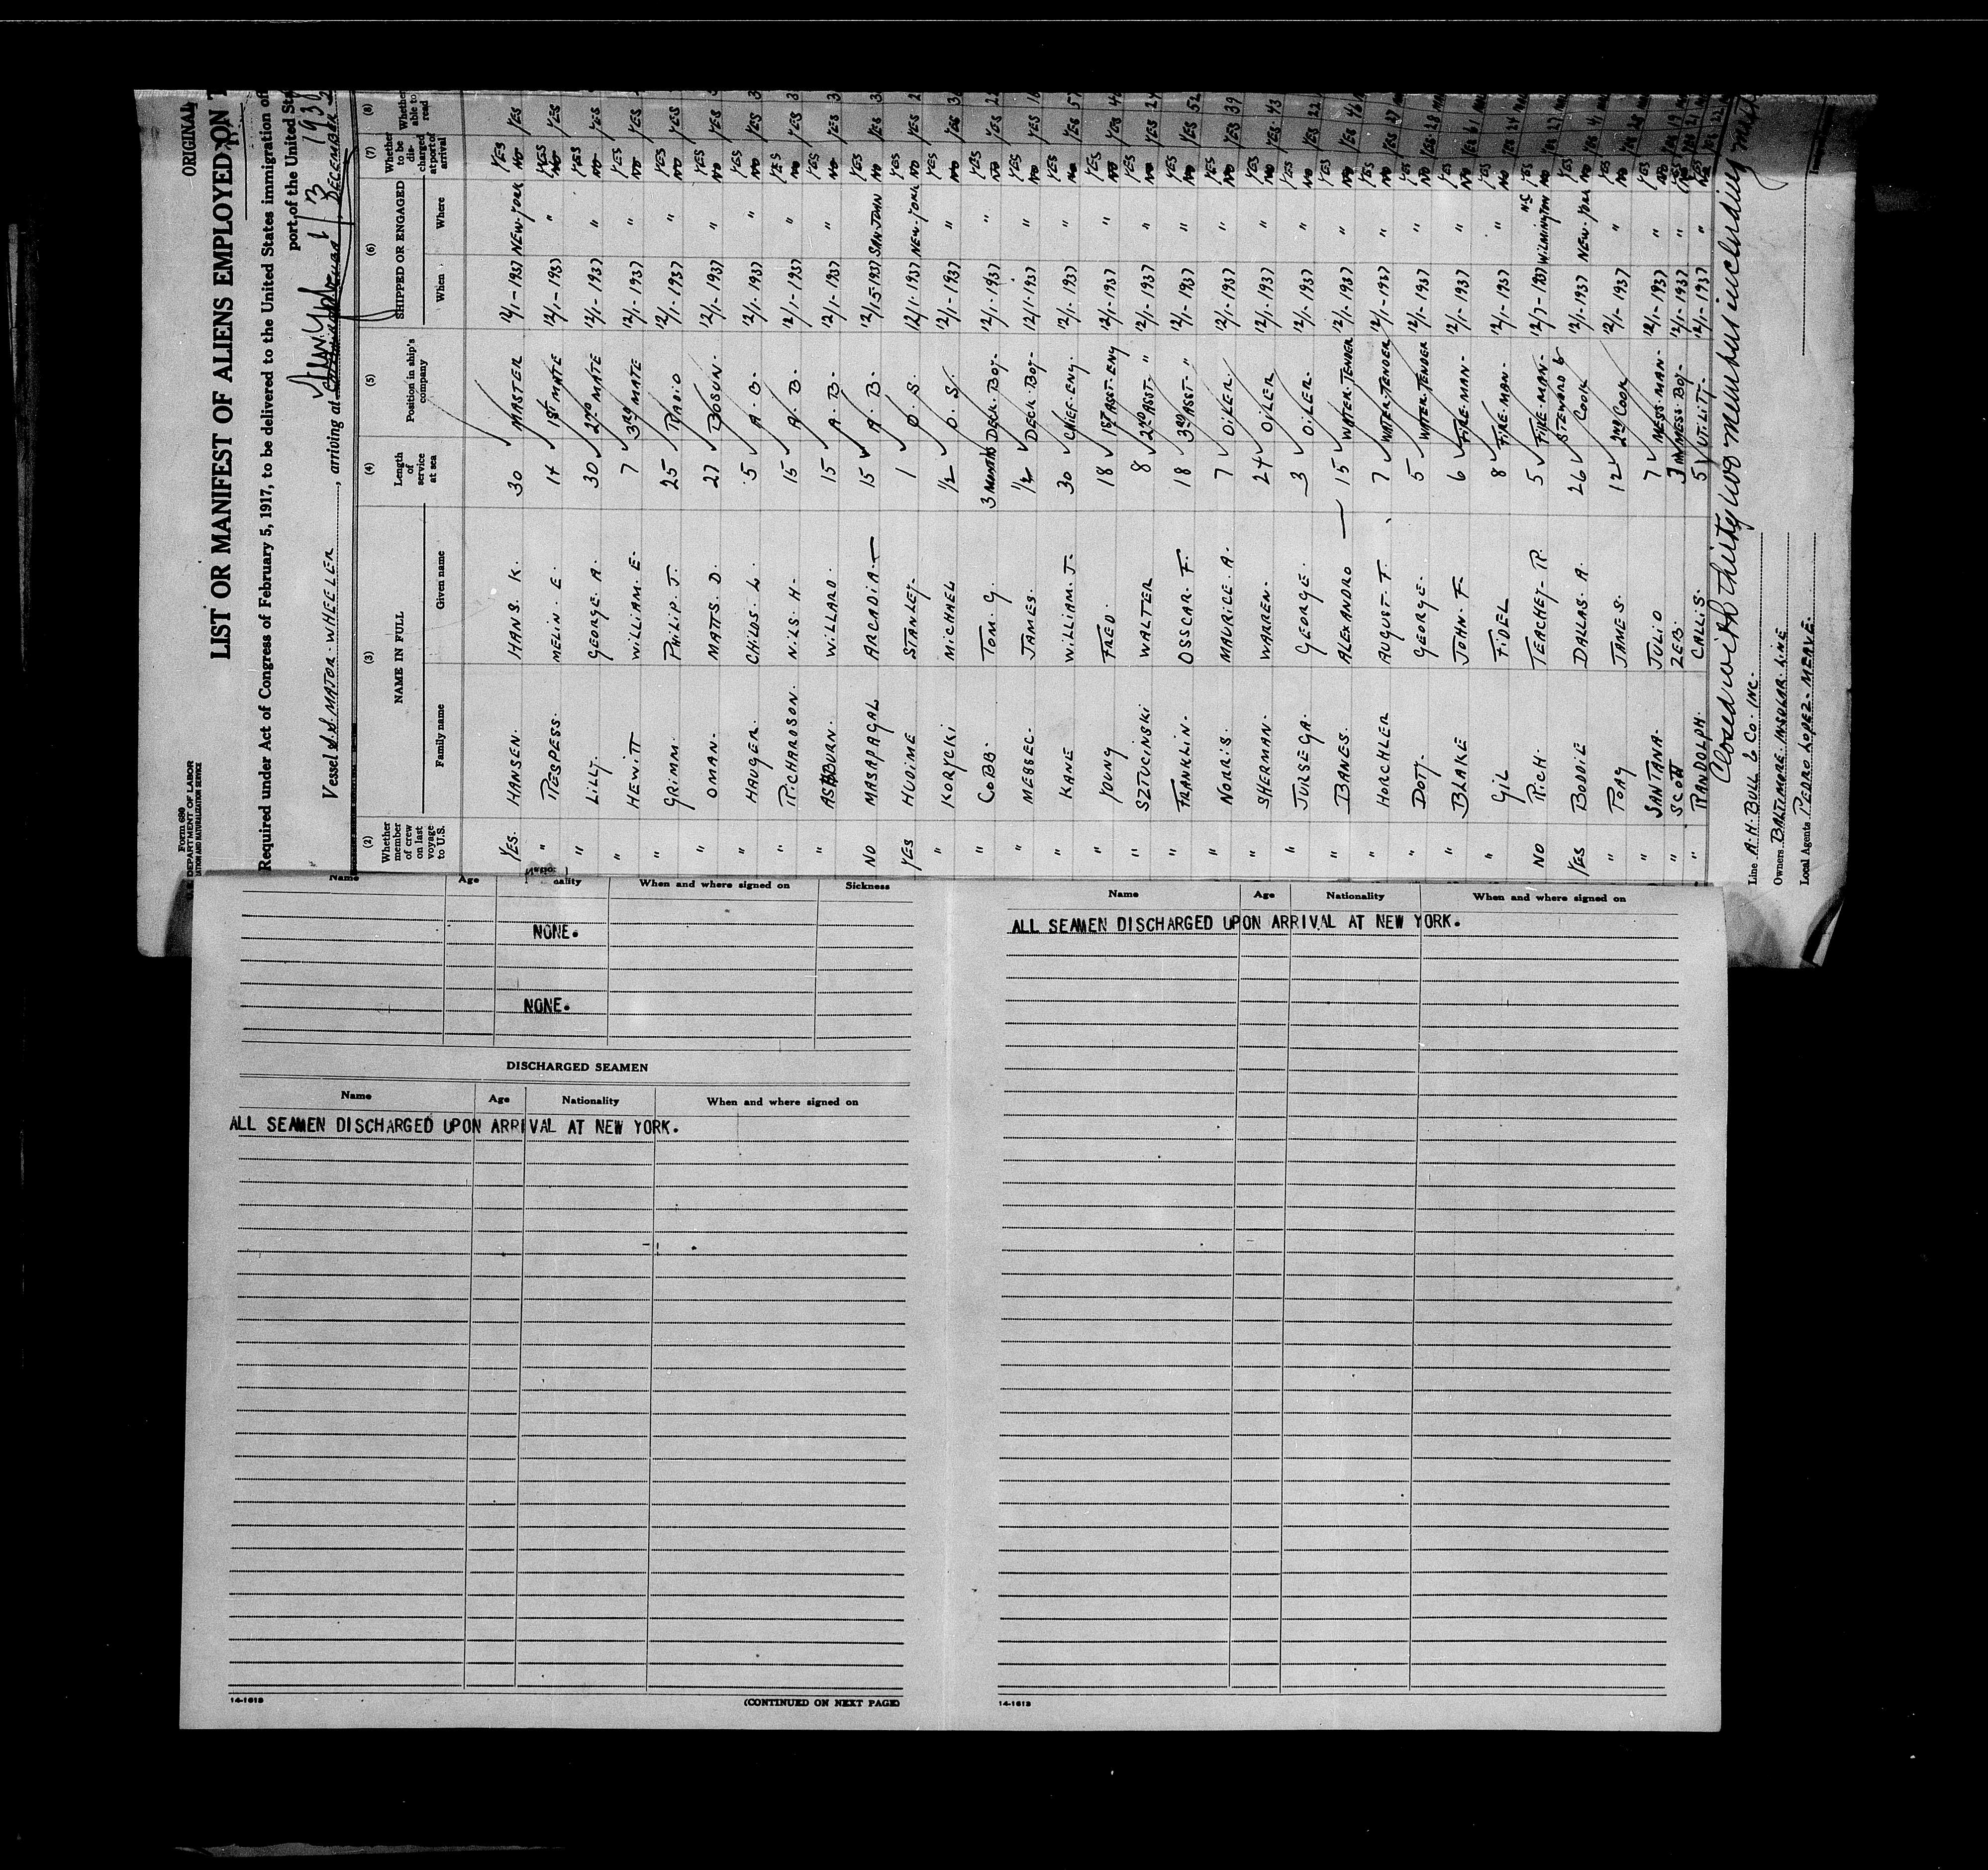 ORIGINAL
Form 680
U.S. DEPARTMENT OF LABOR
IMMIGRATION AND NATURALIZATION SERVICE
LIST OR MANIFEST OF ALIENS EMPLOYED ON T
Required under Act of Congress of February 5, 1917, to be delivered to the United States immigration of
port of the United Sta
Vessel S.S. MATOR. WHEELER, arriving at New York DECEMBER 13 193
(2) Whether member of crew on last voyage to U.S. (3) NAME IN FULL Family name Given name (4) Length of service at sea (5) Position in ship's company (6) SHIPPED OR ENGAGED When Where (7) Whether to be discharged at port of arrival (8) Whether able to read
YES. HANSEN. HANS. K. 30 MASTER 12/1-1937 NEW-YORK YES NO YES
" RESPESS. MELIN. E. 14 1ST MATE 12/1-1937 " YES NO YES
" LILLY. GEORGE. A. 30 2ND MATE 12/1-1937 " YES NO YES
" HEWITT WILLIAM. E. 7 3RD MATE 12/1-1937 " YES NO YES
" GRIMM. PHILIP. J. 25 RADIO 12/1-1937 " YES NO YES
" OMAN. MATTS. D. 27 BOSUN. 12/1-1937 " YES NO YES
" HAUGER. CHILDS. L. 5 A. B. 12/1-1937 " YES NO YES
" RICHARDSON. NILS. H. 15 A. B. 12/1-1937 " YES NO YES
" ASBURN. WILLARD. 15 A. B. 12/1-1937 " YES NO YES
NO MASAPAGAL ARCADIA. 15 A. B. 12/5-1937 SAN JUAN YES NO YES
YES HUDIME STANLEY. 1 O. S. 12/1-1937 NEW-YORK YES NO YES
" KORYCKI MICHAEL 1/2 O. S. 12/1-1937 " YES NO YES
" COBB. TOM. G. 3 MONTHS DECK. BOY. 12/1-1937 " YES NO YES
" MESSEC. JAMES. 1/2 DECK BOY. 12/1-1937 " YES NO YES
" KANE WILLIAM. J. 30 CHIEF. ENG. 12/1-1937 " YES NO YES
" YOUNG FRED. 18 1ST ASST. ENG 12/1-1937 " YES NO YES
" SZTUCINSKI WALTER 8 2ND ASST. " 12/1-1937 " YES NO YES 24
" FRANKLIN. OSSCAR. F. 18 3RD ASST. " 12/1-1937 " YES NO YES 52
" NORRIS. MAURICE. A. 7 OILER. 12/1-1937 " YES NO YES 39
" SHERMAN. WARREN. 24 OILER 12/1-1937 " YES NO YES. 43
" JURSEGA. GEORGE. 3 OILER. 12/1-1937 " YES NO YES 22
" BANES. ALEXANDRO 15 WATER. TENDER 12/1-1937 " YES NO YES 46
" HORCHLER AUGUST. T. 7 WATER. TENDER 12/1-1937 " YES NO YES 27
" DOTY. GEORGE. 5 WATER. TENDER 12/1-1937 " YES NO YES. 28
" BLAKE JOHN. F. 6 FIRE. MAN. 12/1-1937 " YES NO YES 61
" GIL FIDEL 8 FIRE. MAN. 12/1-1937 " YES NO YES 24
NO RICH. TEACHEY. R. 5 FIRE MAN. 12/7-1937 WILMINGTON N.C. YES NO YES 27
YES BODDIE DALLAS. A. 26 STEWORD & COOK 12/1-1937 NEW-YORK YES NO YES 41
" POAG JAMES. 12 2ND COOK 12/1-1937 " YES NO YES 28
" SANTANA. JULIO 7 MESS. MAN. 12/1-1937 " YES NO YES 19
" SCOTT ZEB. 3 M MESS. BOY. 12/1-1937 " YES NO YES 21
" RANDOLPH. CALLIS. 5 UTILITY. 12/1-1937 " YES NO YES 22
Closed with thirty two members including
Line A. H. BULL & CO. INC.
Owners BALTIMORE. INSULAR. LINE
Local Agents PEDRO LOPEZ. MERVE.
Name Age Nationality When and where signed on Sickness
NONE.
NONE.
DISCHARGED SEAMEN
Name Age Nationality When and where signed on
ALL SEAMEN DISCHARGED UPON ARRIVAL AT NEW YORK.
14-1613 (CONTINUED ON NEXT PAGE)
Name Age Nationality When and where signed on
ALL SEAMEN DISCHARGED UPON ARRIVAL AT NEW YORK.
14-1613